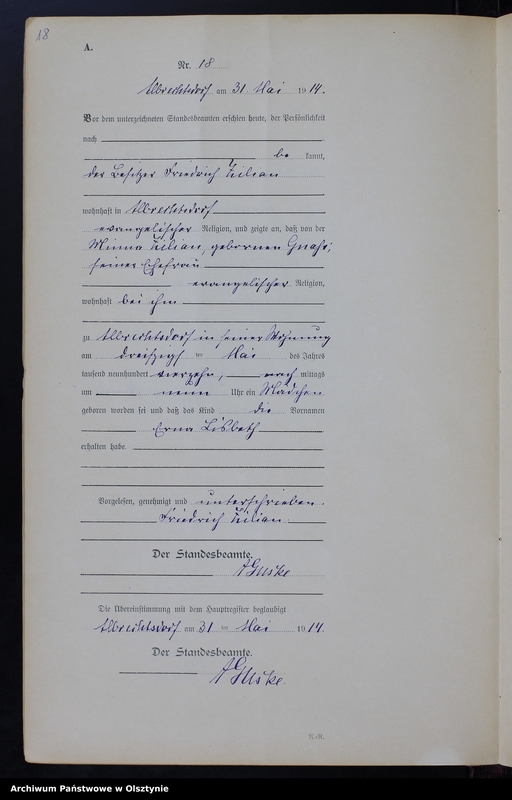 18
A.
Nr. 18
Albrechtsdorf am 31 Mai 1914.
Vor dem unterzeichneten Standesbeamten erschien heute, der Persönlichkeit
nach
be kannt,
der Besitzer Friedrich Kilian
wohnhaft in Albrechtsdorf
evangelischer Religion, und zeigte an, daß von der
Minna Kilian, geborenen
seiner Ehefrau
evangelischer Religion,
wohnhaft bei ihm
zu Albrechtsdorf in seiner Wohnung
am dreißigs ten Mai des Jahres
tausend neunhundert vierzehn, nach mittags
um neun Uhr ein Mädchen
geboren worden sei und daß das Kind die Vornamen
Erna Lisbeth
erhalten habe.
Vorgelesen, genehmigt und unterschrieben.
Friedrich Kilian.
Der Standesbeamte.
Guske
Die Übereinstimmung mit dem Hauptregister beglaubigt
Albrechtsdorf am 31 ten Mai 1914.
Der Standesbeamte.
Guske.
Archiwum Państwowe w Olsztynie